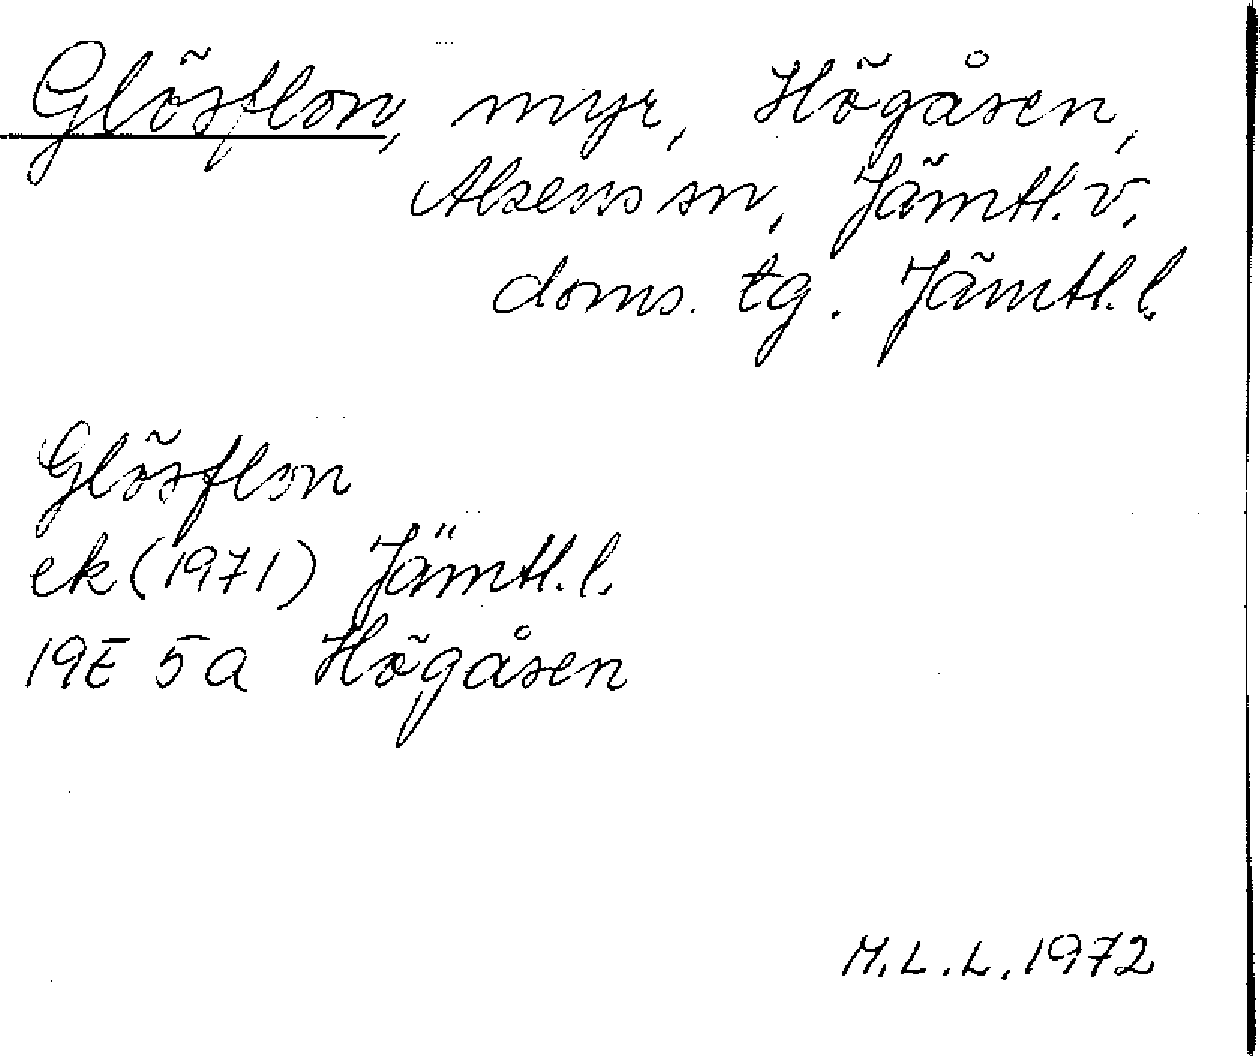 Glösflon, myr, Högåsen,
Alsens sn, Jämtl. v.
doms. tg. Jämtl. l.
Glösflon
ek (1971) Jämtl. l.
19E 5a Högåsen
M.L.L. 1972